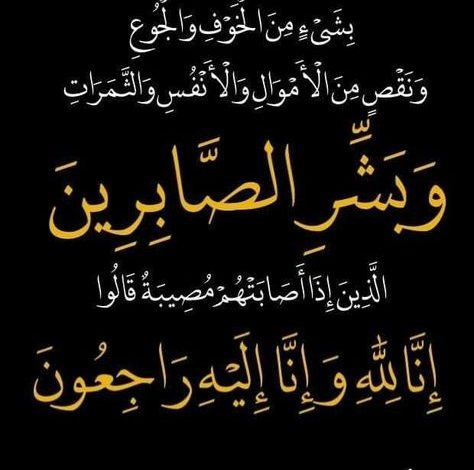 بِشَىْءٍ مِنَ الْخَوْفِ وَالْجُوعِ
وَنَقْصٍ مِنَ الْأَمْوَالِ وَالْأَنْفُسِ وَالثَّمَرَاتِ
وَبَشِّرِ الصَّابِرِينَ
الَّذِينَ إِذَا أَصَابَتْهُمْ مُصِيبَةٌ قَالُوا
إِنَّا لِلَّهِ وَإِنَّا إِلَيْهِ رَاجِعُونَ